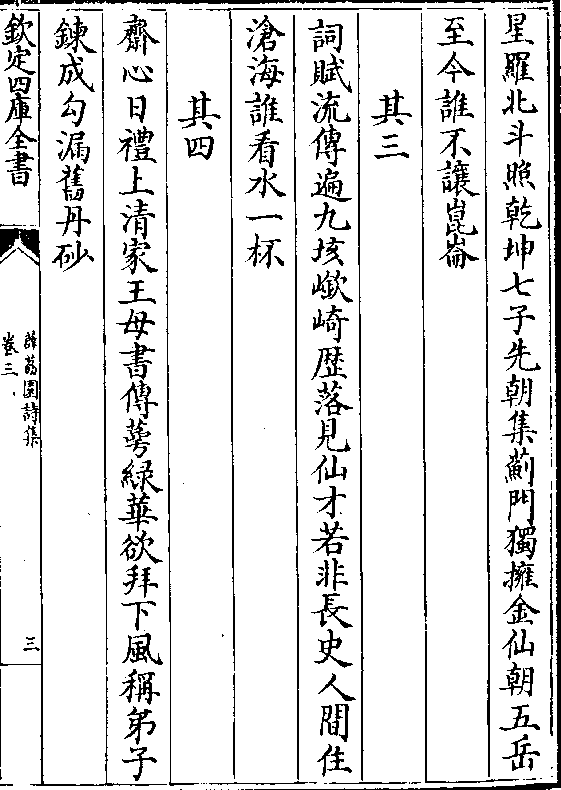 星羅北斗照乾坤七子先朝集薊門獨擁金仙朝五岳
至今誰不讓崑崙
其三
詞賦流傳遍九垓嶔崎歴落見仙才若非長史人間住
滄海誰看水一杯
其四
齋心日禮上清家王母書傳萼緑華欲拜下風稱弟子
鍊成勾漏舊丹砂
欽定四庫全書
薜荔園詩集
卷三
三